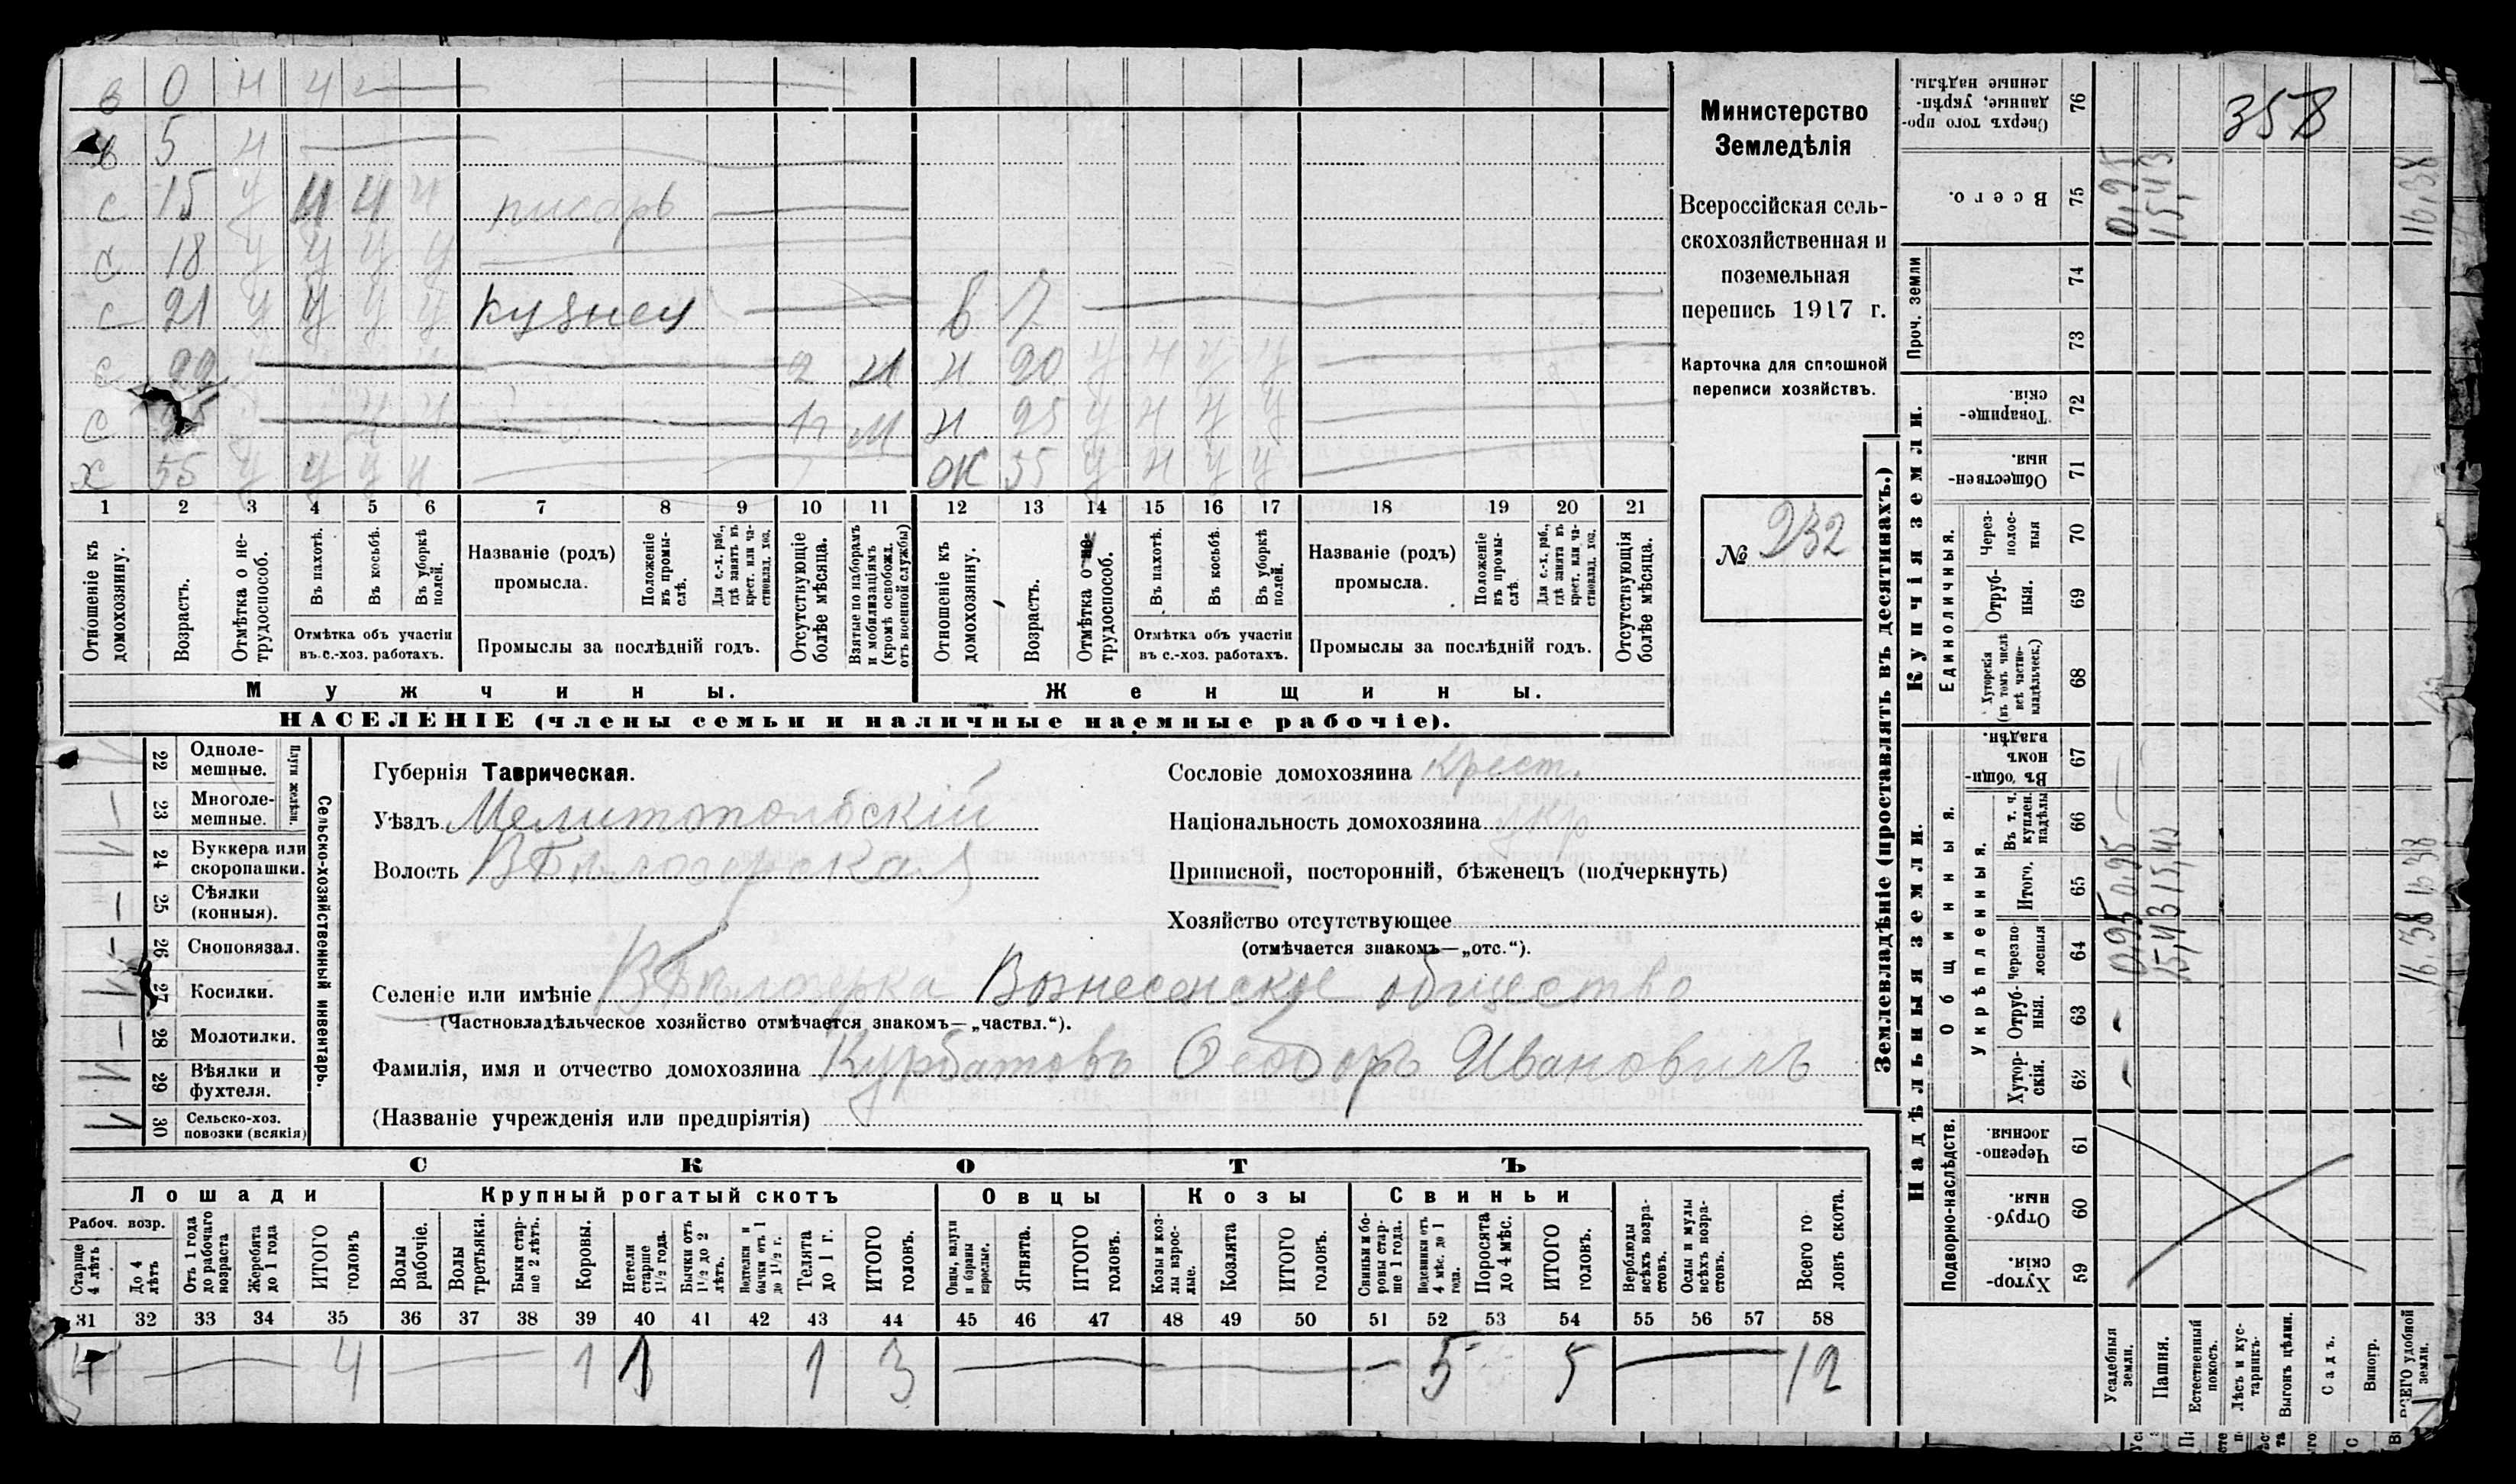 в 0 н ч
в 5 н
с 15 у н ч н писарь
с 18 у у у у
с 21 у у у у кузнец в 7
с 22 2 М н 20 у н у у
с М н 25 у н у у
х 55 у у у у ж 55 у н у у
1 2 3 4 5 6 7 8 9 10 11 12 13 14 15 16 17 18 19 20 21
Отношеніе къ домохозяину.
Возрастъ.
Отмѣтка о не-трудоспособ.
Въ пахотѣ.
Въ косьбѣ.
Въ уборкѣ полей.
Отмѣтка объ участіи въ с.-хоз. работахъ.
Названіе (родъ) промысла.
Положеніе въ промы-слѣ.
Для с.-х. раб., гдѣ занятъ въ крест. или ча-стновлад. хоз.
Промыслы за послѣдній годъ.
Отсутствующіе болѣе мѣсяца.
Взятые по наборамъ и мобилизаціямъ (кромѣ освобожд. отъ военной службы)
Отношеніе къ домохозяину.
Возрастъ.
Отмѣтка о не-трудоспособ.
Въ пахотѣ.
Въ косьбѣ.
Въ уборкѣ полей.
Отмѣтка объ участіи въ с.-хоз. работахъ.
Названіе (родъ) промысла.
Положеніе въ промы-слѣ.
Для с.-х. раб., гдѣ занята въ крест. или ча-стновлад. хоз.
Промыслы за послѣдній годъ.
Отсутствующія болѣе мѣсяца.
Мужчины.
Женщины.
НАСЕЛЕНІЕ (члены семьи и наличные наемные рабочіе).
Министерство
Земледѣлія
Всероссійская сель-
скохозяйственная и
поземельная
перепись 1917 г.
Карточка для сплошной
переписи хозяйствъ.
№ 232
22 Одноле-мешные.
23 Многоле-мешные.
Плуги желѣзн.
24 Буккера или скоропашки.
25 Сѣялки (конныя).
26 Сноповязал.
27 Косилки.
28 Молотилки.
29 Вѣялки и фухтеля.
30 Сельско-хоз. повозки (всякія)
Сельско-хозяйственный инвентарь.
Губернія Таврическая.
Уѣздъ Мелитопольскій
Волость ВБѣлозерская
Сословіе домохозяина Крест.
Національность домохозяина укр
Приписной, посторонній, бѣженецъ (подчеркнуть)
Хозяйство отсутствующее
(отмѣчается знакомъ—„отс.“).
Селеніе или имѣніе ВБѣлозерка Вознесенское общество
(Частновладѣльческое хозяйство отмѣчается знакомъ—„частвл.“).
Фамилія, имя и отчество домохозяина Курбатовъ Ѳеодоръ Ивановичъ
(Названіе учрежденія или предпріятія)
СКОТЪ
Лошади Крупный рогатый скотъ Овцы Козы Свиньи
Рабоч. возр.
Старше 4 лѣтъ
До 4 лѣтъ
Отъ 1 года до рабочаго возраста
Жеребята до 1 года
ИТОГО головъ
Волы рабочіе.
Волы третьяки.
Быки стар-ше 2 лѣтъ.
Коровы.
Нетели старше 1½ года.
Бычки отъ 1½ до 2 лѣтъ.
Подтелки и бычки отъ 1 до 1½ г.
Телята до 1 г.
ИТОГО головъ.
Овцы, валухи и бараны взрослые.
Ягнята.
ИТОГО головъ.
Козы и коз-лы взрос-лые.
Козлята
ИТОГО головъ.
Свиньи и бо-ровы стар-ше 1 года.
Подсвинки отъ 4 мѣс. до 1 года.
Поросята до 4 мѣс.
ИТОГО головъ.
Верблюды всѣхъ возра-стовъ.
Ослы и мулы всѣхъ возра-стовъ.
Всего го-ловъ скота.
31 32 33 34 35 36 37 38 39 40 41 42 43 44 45 46 47 48 49 50 51 52 53 54 55 56 57 58
4 4 1 1 1 3 5 5 12
Землевладѣніе (проставлять въ десятинахъ.)
Надѣльныя земли.
Купчія земли.
Проч. земли
Подворно-наслѣдств.
Общинныя.
Укрѣпленныя.
Единоличныя.
76 Сверхъ того про-данные, укрѣп-ленные надѣлы.
358
75 Всего. 0,95 15,43 16,38
74
73
72 Товарище-скія.
71 Обществен-ныя.
70 Через-полос-ныя
69 Отруб-ныя.
68 Хуторскія (въ томъ числѣ всѣ частно-владѣльческ.)
67 Въ общи-номъ владѣн.
66 Въ т. ч. куплен. надѣлы
65 Итого. 0,95 15,43 16,38
64 Черезпо-лосныя 0,95 15,43 16,38
63 Отруб-ныя.
62 Хутор-скія.
61 Черезпо-лосныя.
60 Отруб-ныя.
59 Хутор-скія.
Усадебныя земли.
Пашня.
Естественный покосъ.
Лѣсъ и кус-тарникъ.
Выгонъ цѣлин.
Садъ.
Виногр.
ВСЕГО удобной земли.